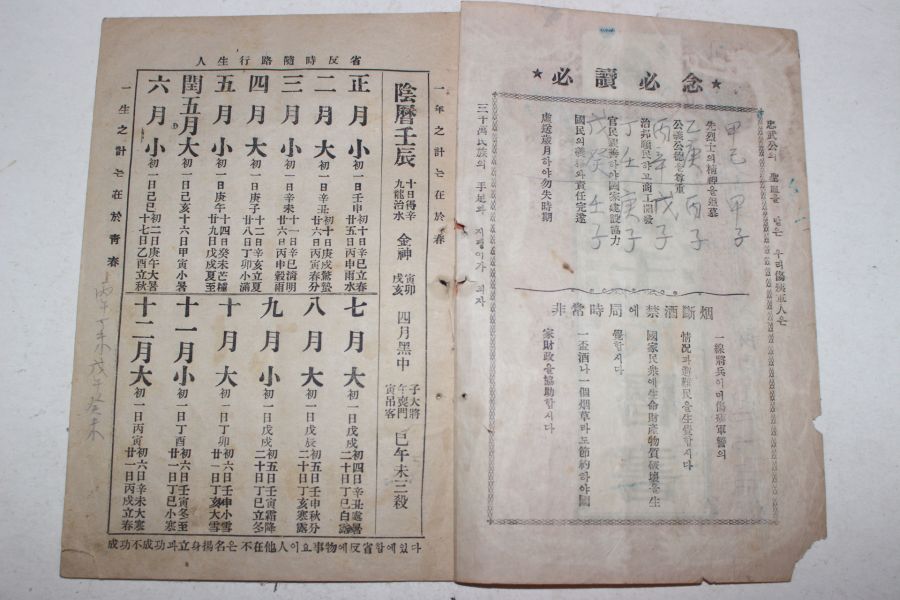 ★必讀必念★
忠武公의 聖血을 받은 우리傷痍軍人은
先烈士의精神을追慕
公義公德을尊重
治邦順民하고商工開發
官民親善하야國家建設協力
國民의義務와責任完遂
虛送歲月하야勿失時期
三十萬民族의 手足과 지팽이가 되자
甲己 甲子
乙庚 丙子
丙辛 戊子
丁壬 庚子
戊癸 壬子
非常時局에禁酒斷烟
一線將兵이며傷痍軍警의
情況과難民을生覺합시다
國家民衆에生命財産物質破壞을生
覺합시다
一盃酒나一個烟草라도節約하야國
家財政을協助합시다
人生行路隨時反省
一年之計는在於春
陰曆壬辰
十日得辛
九龍治水
金神
寅卯
戌亥
四月黑中
子大將
午喪門
寅吊客
巳午未三殺
正月小
初一日壬申
初十日辛巳立春
廿五日丙申雨水
二月大
初一日辛丑
初十日庚戌驚蟄
廿六日丙寅春分
三月小
初一日辛未
十一日辛巳淸明
廿六日丙申穀雨
四月大
初一日庚子
十二日辛亥立夏
廿八日丁卯小滿
五月小
初一日庚午
十四日癸未芒種
廿九日戊戌夏至
閏五月大
初一日己亥
十六日甲寅小暑
六月小
初一日己巳
初二日庚午大暑
十七日乙酉立秋
七月大
初一日戊戌
初四日辛丑處暑
二十日丁巳白露
八月大
初一日戊辰
初五日壬申秋分
二十日丁亥寒露
九月小
初一日戊戌
初五日壬寅霜降
二十日丁巳立冬
十月大
初一日丁卯
初六日壬申小雪
廿一日丁亥大雪
十一月小
初一日丁酉
初六日壬寅冬至
廿一日丁巳小寒
十二月大
初一日丙寅
初六日辛未大寒
廿一日丙戌立春
一生之計는在於靑春
丙午丁未戊午癸未
成功不成功과立身揚名은不在他人이요事物에反省함에있다